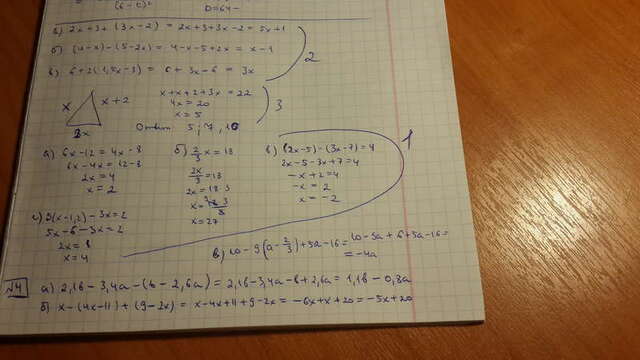 (6-c)²
D=64-
а) 2x+3+(3x-2) = 2x+3+3x-2 = 5x+1
б) (4-x)-(5-2x) = 4-x-5+2x = x-1
в) 6+2(1,5x-3) = 6+3x-6 = 3x
2
x x+2
3x
x+x+2+3x=22
4x=20
x=5
Ответ 5; 7, 10
3
а) 6x-12=4x-8
6x-4x=12-8
2x=4
x=2
б) 2/3 x=18
2x/3=18
2x=18·3
x=27
в) (2x-5)-(3x-7)=4
2x-5-3x+7=4
-x+2=4
-x=2
x=-2
1
г) 5(x-1,2)-3x=2
5x-6-3x=2
2x=8
x=4
в) 10-9(a-2/3)+5a-16= 10-9a+6+5a-16=
=-4a
№4
а) 2,1b-3,4a-(b-2,6a)=2,1b-3,4a-b+2,6a=1,1b-0,8a
б) x-(4x-11)+(9-2x)=x-4x+11+9-2x=-6x+x+20=-5x+20